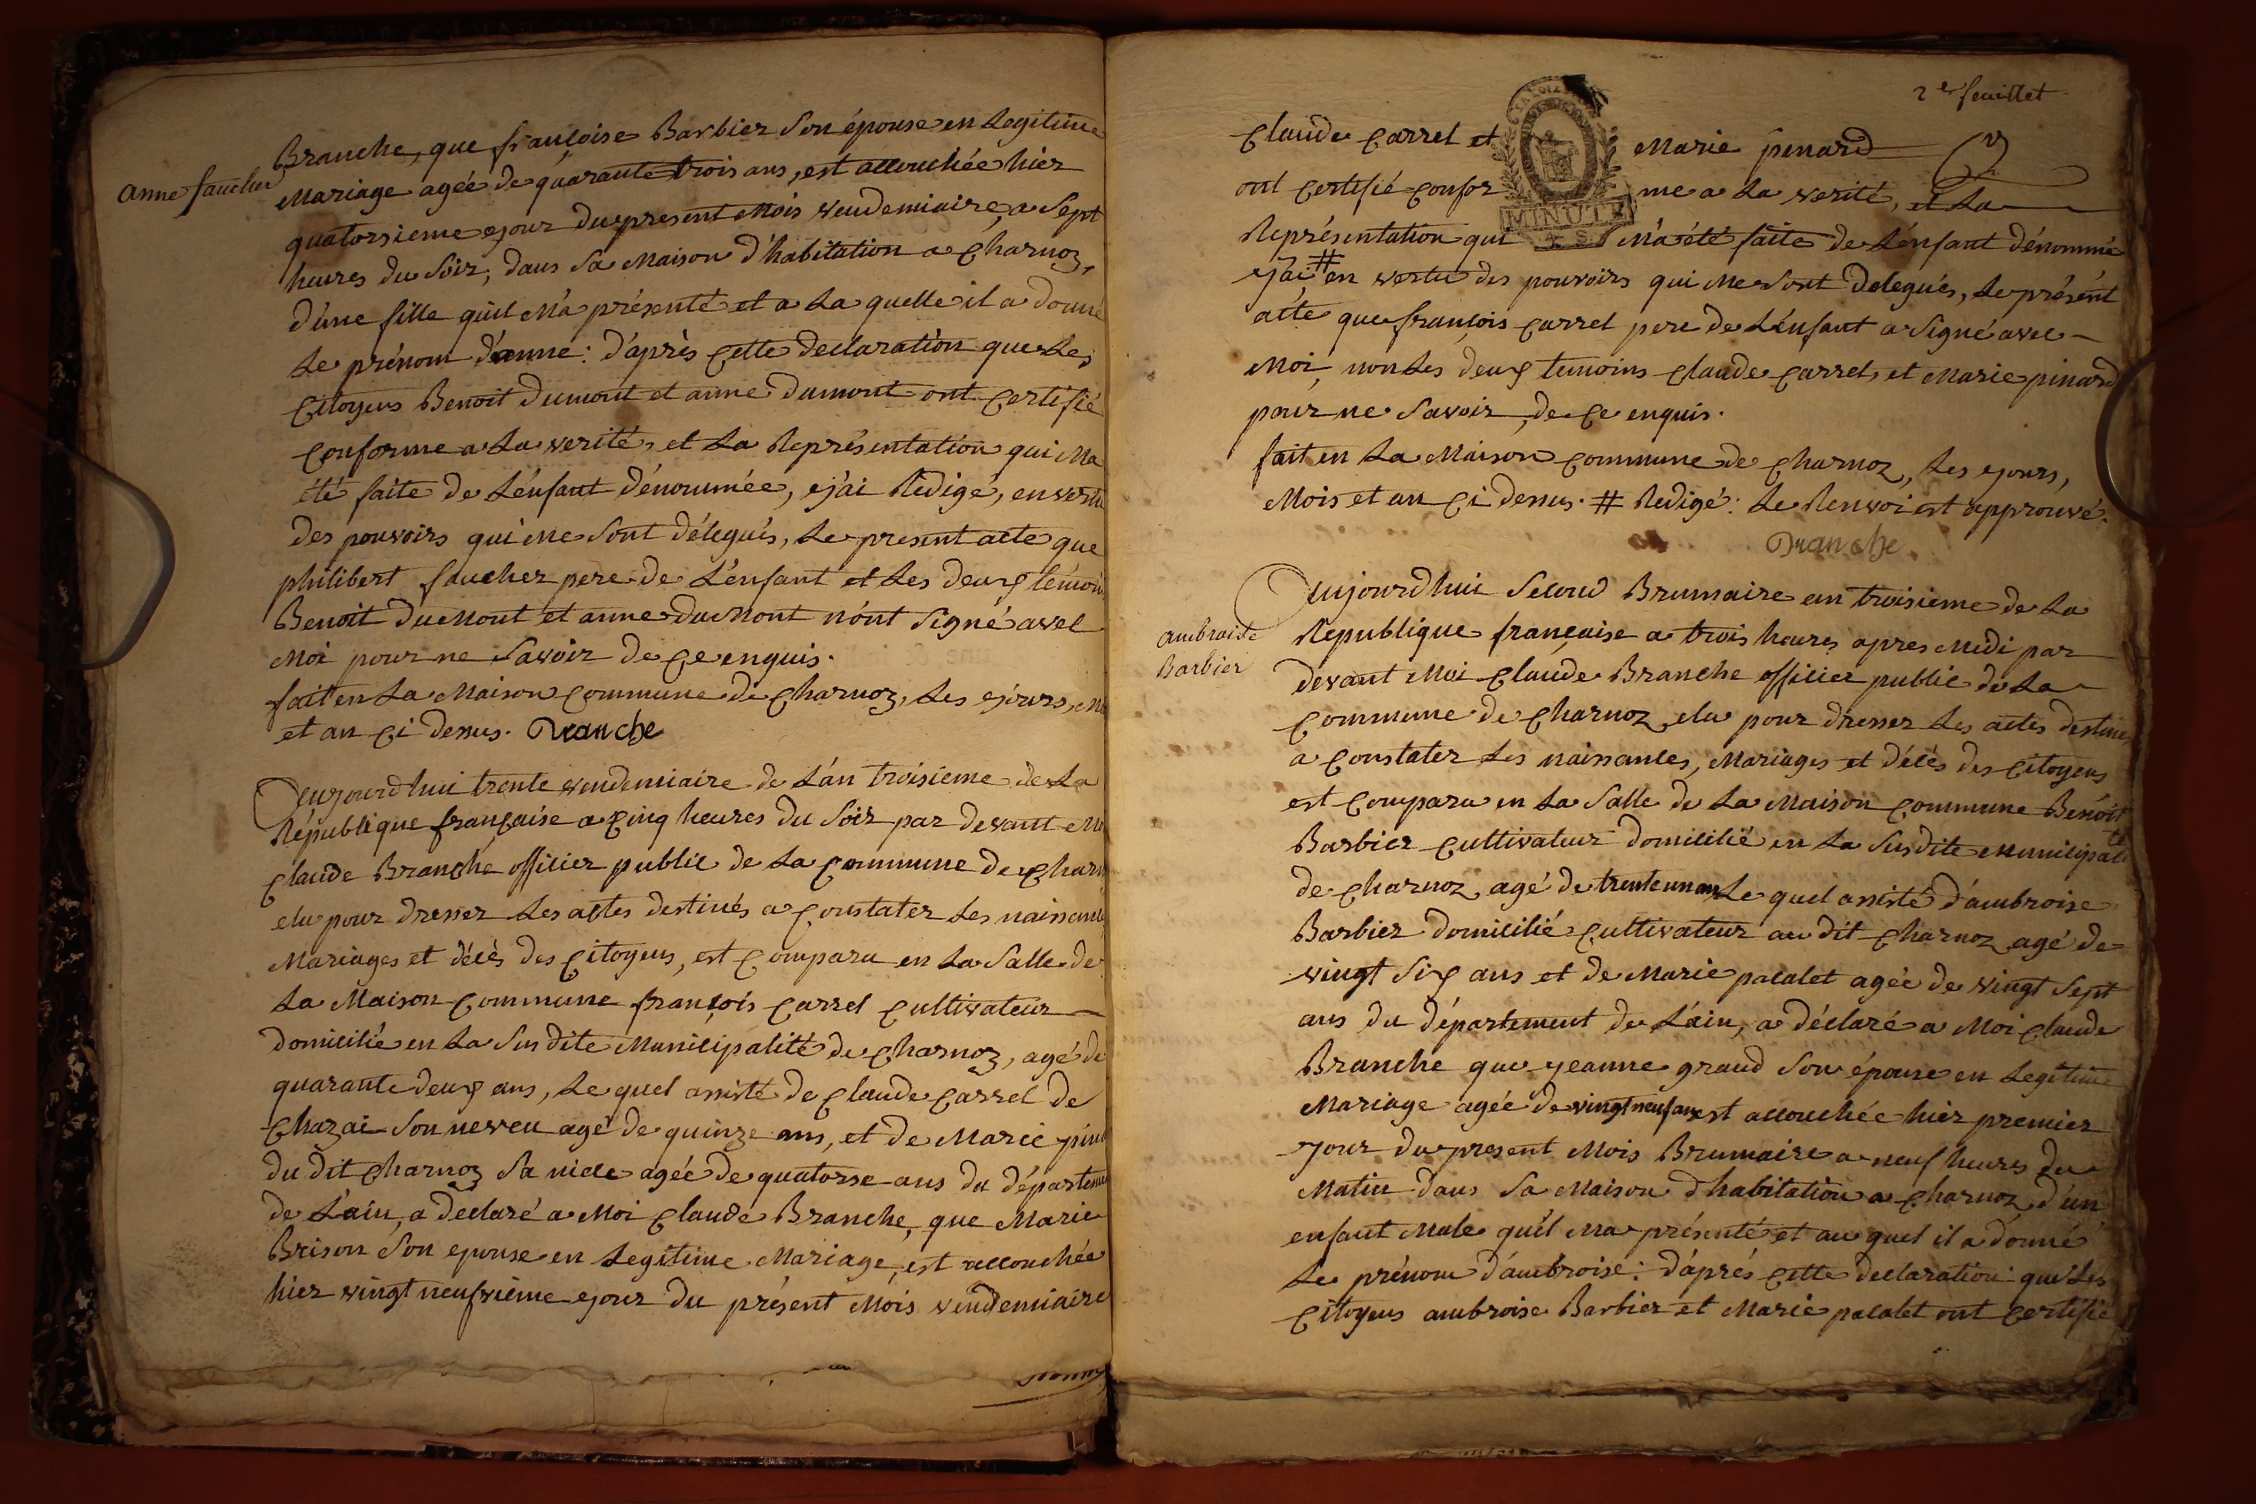 Branche, que françoise Barbier Son épouse en Legitime
anne faucher
Mariage agée de quarante trois ans, est accouchée hier
quatorsieme jour du present Mois vendemiaire a Sept
heures du Soir, dans Sa Maison d'habitation a Charnoz,
d'une fille qu'il M'a présenté et a La quelle il a donné
Le prénom d'anne: d'après Cette declaration que Les
Citoyens Benoit Dumont et anne dumont ont Certifié
Conforme a La verité, et La Représentation qui Ma
été faite de L'enfant dénommée, j'ai Redigé, en vertu
des pouvoirs qui Me Sont délegués, Le present acte que
philibert faucher pere de L'enfant et Les deux témoins
Benoit duMont et anne duMont n'ont Signé avec
Moi pour ne Savoir de Ce enquis.
fait en La Maison Commune de Charnoz, Les jours, Mo
et an Ci dessus. Branche
Aujourd'hui trente vendemiaire de L'an troisieme de La
République française a Cinq heures du Soir par devant Moi
Claude Branche officier public de La Commune de Charn
elu pour dresser Les actes destinés a Constater Les naissance
Mariages et décès des Citoyens, est Comparu en La Salle de
La Maison Commune françois Carrel Cultivateur
domicilié en La Susdite Municipalité de Charnoz, agé de
quarante deux ans, Le quel assisté de Claude Carrel de
Chazai Son neveu agé de quinze ans, et de Marie pin
du dit Charnoz Sa niece agée de quatorse ans du départeme
de L'ain, a declaré a Moi Claude Branche, que Marie
Brison Son epouse en Legitime Mariage, est accouchée
hier vingt neufvieme jour du présent Mois vendemiaire
2e feuillet
Claude Carrel et Marie pinard
ont Certifié Confor me a La verité, et La
Représentation qui M'a été faite de L'enfant dénommé
j'ai # en vertu des pouvoirs qui Me Sont delegués, Le présent
acte que françois Carrel pere de L'enfant a Signé avec
Moi, non Les deux temoins Claude Carrel, et Marie pinard
pour ne Savoir, de Ce enquis.
fait en La Maison Commune de Charnoz, Les jours,
Mois et an Ci dessus. # Redigé: Le Renvoi est approuvé.
Branche
MINUTE
Aujourd'hui Second Brumaire an troisieme de La
ambroise
Barbier
Republique française a trois heures apres Midi par
devant Moi Claude Branche officier public de La
Commune de Charnoz elu pour dresser Les actes destines
a Constater Les naissances, Mariages et décès des Citoyens
est Comparu en La Salle de La Maison Commune Benoit
Barbier Cultivateur domicilié en La Susdite Municipalité
de Charnoz agé de trente un an Le quel assisté d'ambroise
Barbier domicilié Cultivateur au dit Charnoz agé de
vingt Six ans et de Marie pacalet agée de vingt Sept
ans du département de L'ain, a déclaré a Moi Claude
Branche que jeanne grand Son épouse en Legitime
Mariage agée de vingt neuf ans est accouchée hier premier
jour du present Mois Brumaire a neuf heures du
Matin dans Sa Maison d'habitation a Charnoz, d'un
enfant Male qu'il Ma présenté et au quel il a donné
Le prénom d'ambroise: d'après Cette declaration que Les
Citoyens ambroise Barbier et Marie pacalet ont Certifié